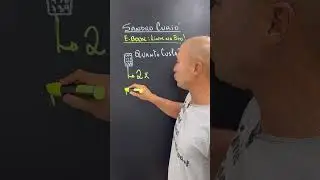 SANDRO CURIÓ
E-BOOK: LINK NA BIO!
QUANTO CUSTA
2x
2x